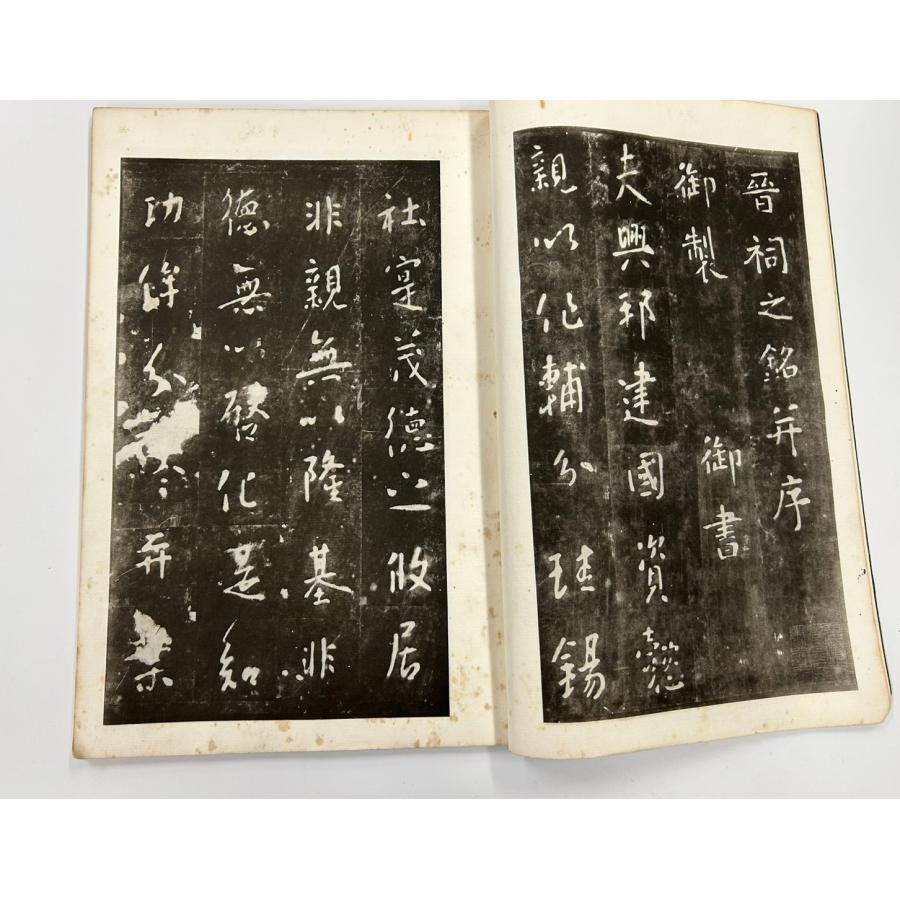 晉祠之銘并序
御製 御書
夫興邦建國資懿
親以作輔分珪錫
社寔茂德之攸居
非親無以隆基非
德無以啓化是知
功侔分弈葉